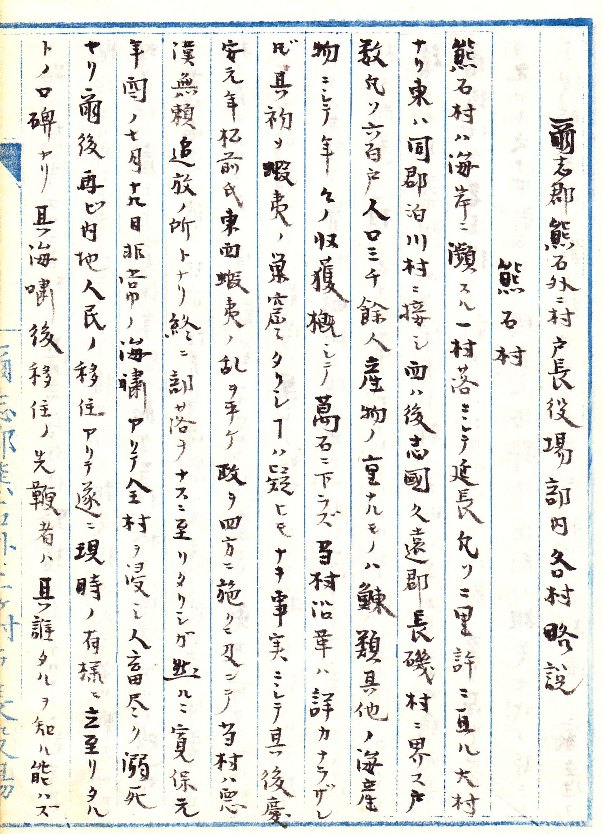 爾志郡熊石外二村戸長役場部内各村略説
熊石村
熊石村ハ海岸ニ瀕スル一村落ニシテ延長凡ソ二里許ニ亘ル大村
ナリ東ハ同郡泊川村ニ接シ西ハ後志國久遠郡長磯村ニ界ス戸
数凡ソ六百戸人口三千餘人産物ノ重ナルモノハ鰊類其他ノ海産
物ニシテ年々ノ収獲概シテ萬石ニ下ラズ当村沿革ハ詳カナラザレ
ドモ其初メ蝦夷ノ巣窟タリシヿハ疑ヒモナキ事実ニシテ其後慶
安元年松前氏東西蝦夷ノ乱ヲ平ケ政ヲ四方ニ施クニ及ンテ当村ハ悪
漢無頼追放ノ所トナリ終ニ部落ヲナスニ至リタリシガ然ルニ寛保元
年酉ノ七月十九日非常ノ海嘯アリテ全村ヲ浸シ人畜尽ク溺死
セリ爾後再ビ内地人民ノ移住アリテ遂ニ現時ノ有様ニ立至リタル
トノ口碑ナリ其海嘯後移住ノ先鞭者ハ其誰タルヲ知ル能ハズ